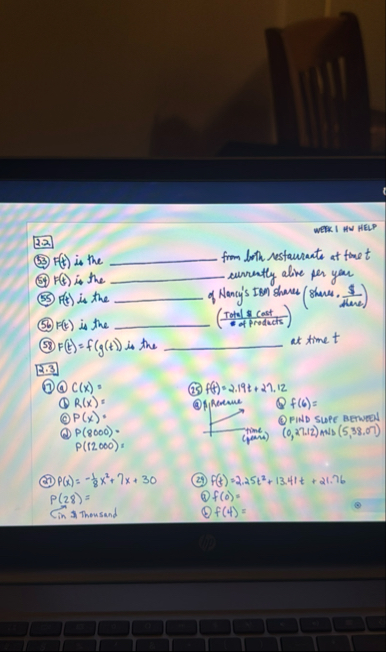 WEEK 1 HW HELP
2.2
53 F(t) is the ____________ from both restaurants at time t
54 F(t) is the ____________ currently alive per year
55 F(t) is the ____________ of Nancy's IBM shares (shares · $/share)
56 F(t) is the ____________ (Total $ Cost / # of products)
58 F(t) = f(g(t)) is the ____________ at time t
2.3
17 a C(x) =
b R(x) =
c P(x) =
d P(8000) =
P(12000) =
25 f(t) = 2.19t + 27.12
a $ Revenue
time (years)
b f(6) =
c FIND SLOPE BETWEEN
(0, 27.12) AND (5, 38.07)
27 P(x) = -1/8 x² + 7x + 30
P(28) =
in $ Thousand
29 f(t) = 2.25t² + 13.41t + 21.76
a f(0) =
b f(4) =